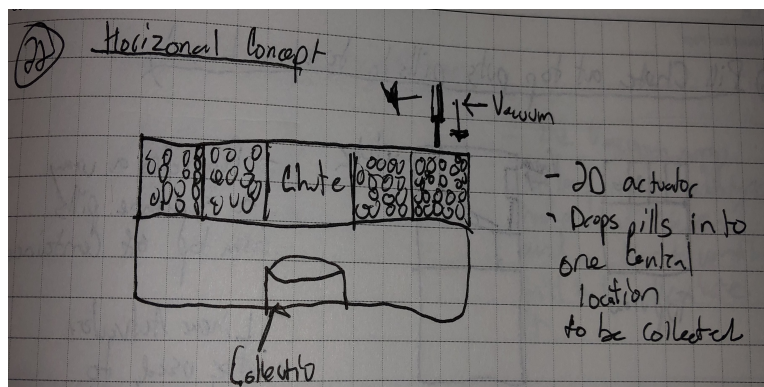 22
Horizonal Concept
← Vacuum
Chute
- 2D actuator
- Drops pills into
one Central
location
to be collected
Collectio